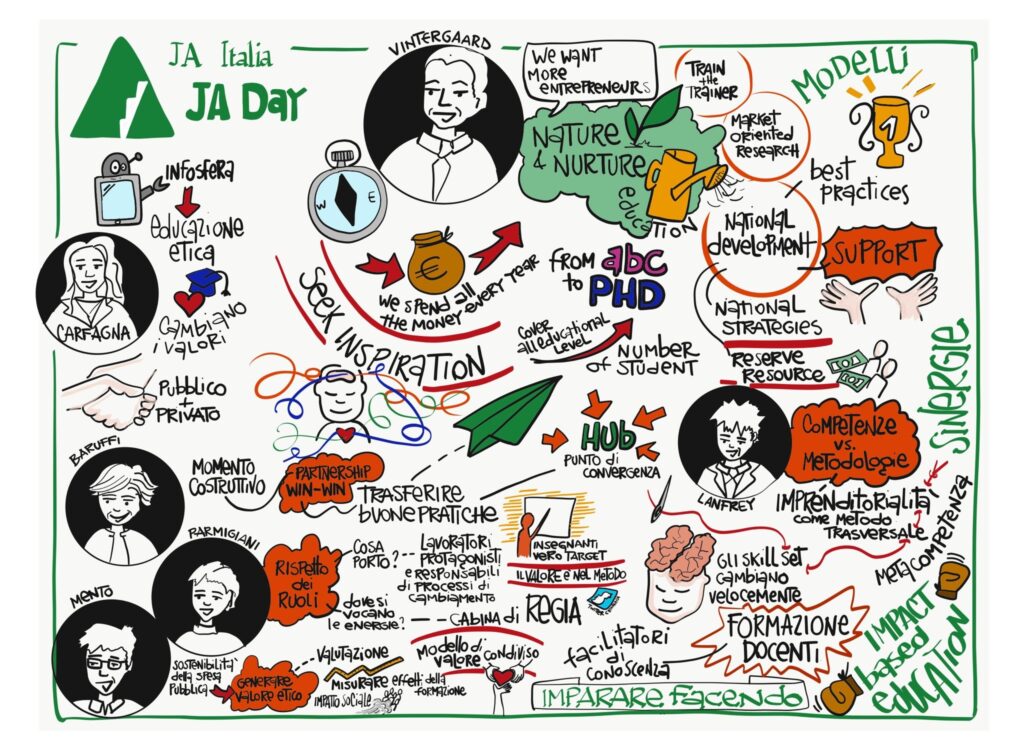 JA Italia
JA Day
VINTERGAARD
WE WANT
MORE
ENTREPRENEURS
NATURE
& NURTURE
education
TRAIN
the
TRAINER
MARKET
ORIENTED
RESEARCH
MODELLI
1
best
PRACTICES
NATIONAL
development
SUPPORT
NATIONAL
STRATEGIES
RESERVE
RESOURCE
SINERGIE
INFOSFERA
educazione
etica
Cambiano
i valori
CARFAGNA
PUBBLICO
+
PRIVATO
W
E
SEEK INSPIRATION
€
WE SPEND ALL
THE MONEY EVERY YEAR
FROM abc
to PHD
COVER
all educational
LEVEL
NUMBER
of STUDENT
HUB
PUNTO di
CONVERGENZA
LANFREY
COMPETENZE
VS.
METODOLOGIE
IMPRENDITORIALITÀ
COME METODO
TRASVERSALE
METACOMPETENZA
BARUFFI
MOMENTO
COSTRUTTIVO
PARTNERSHIP
WIN-WIN
TRASFERIRE
BUONE PRATICHE
PARMIGIANI
RISPETTO
dei
RUOLI
COSA
PORTO?
LAVORATORI
PROTAGONISTI
E RESPONSABILI
DI PROCESSI DI
CAMBIAMENTO
DOVE SI
VOCANO
LE ENERGIE?
CABINA di REGIA
INSEGNANTI
VERO TARGET
IL VALORE È NEL METODO
GLI SKILL SET
CAMBIANO
VELOCEMENTE
FORMAZIONE
DOCENTI
facilitatori
di
CONOSCENZA
MENTO
SOSTENIBILITÀ
della SPESA
PUBBLICA
GENERARE
VALORE ETICO
VALUTAZIONE
MISURARE effetti della
formazione
IMPATTO SOCIALE
MODELLO di
VALORE CONDIVISO
IMPARARE facendo
IMPACT
based
education